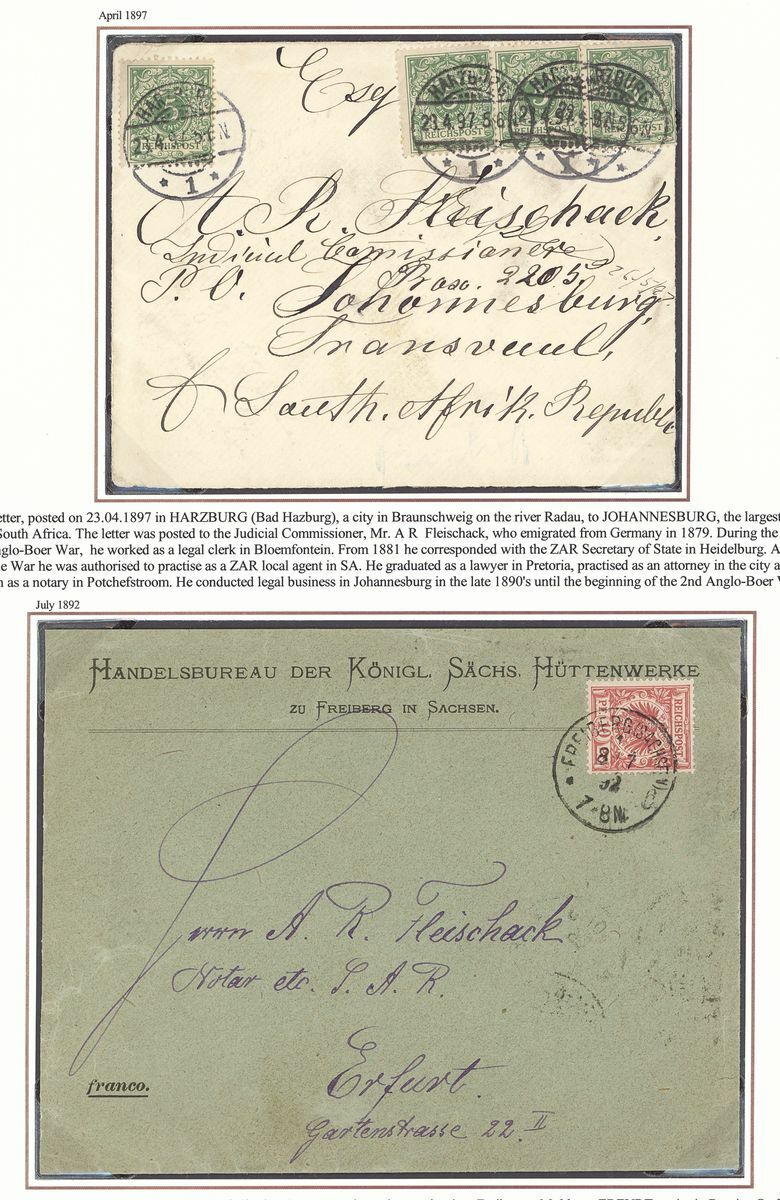 April 1897
Esq
5
REICHSPOST
HARZBURG
23.4.97.5-6N
* 1 *
A. R. Fleischack,
Judicial Comissioner
P. O. Box. 2205.
Johannesburg,
Transvaal,
South. Afrik. Republ
etter, posted on 23.04.1897 in HARZBURG (Bad Hazburg), a city in Braunschweig on the river Radau, to JOHANNESBURG, the largest
South Africa. The letter was posted to the Judicial Commissioner, Mr. A R Fleischack, who emigrated from Germany in 1879. During the
nglo-Boer War, he worked as a legal clerk in Bloemfontein. From 1881 he corresponded with the ZAR Secretary of State in Heidelburg. A
e War he was authorised to practise as a ZAR local agent in SA. He graduated as a lawyer in Pretoria, practised as an attorney in the city a
n as a notary in Potchefstroom. He conducted legal business in Johannesburg in the late 1890's until the beginning of the 2nd Anglo-Boer W
July 1892
HANDELSBUREAU DER KÖNIGL. SÄCHS. HÜTTENWERKE
ZU FREIBERG IN SACHSEN.
REICHSPOST
10
FREIBERG (SACHSEN)
8 7
92
7-8N.
Herrn A. R. Fleischack
Notar etc. S. A. R.
Erfurt.
franco.
Gartenstrasse 22 II